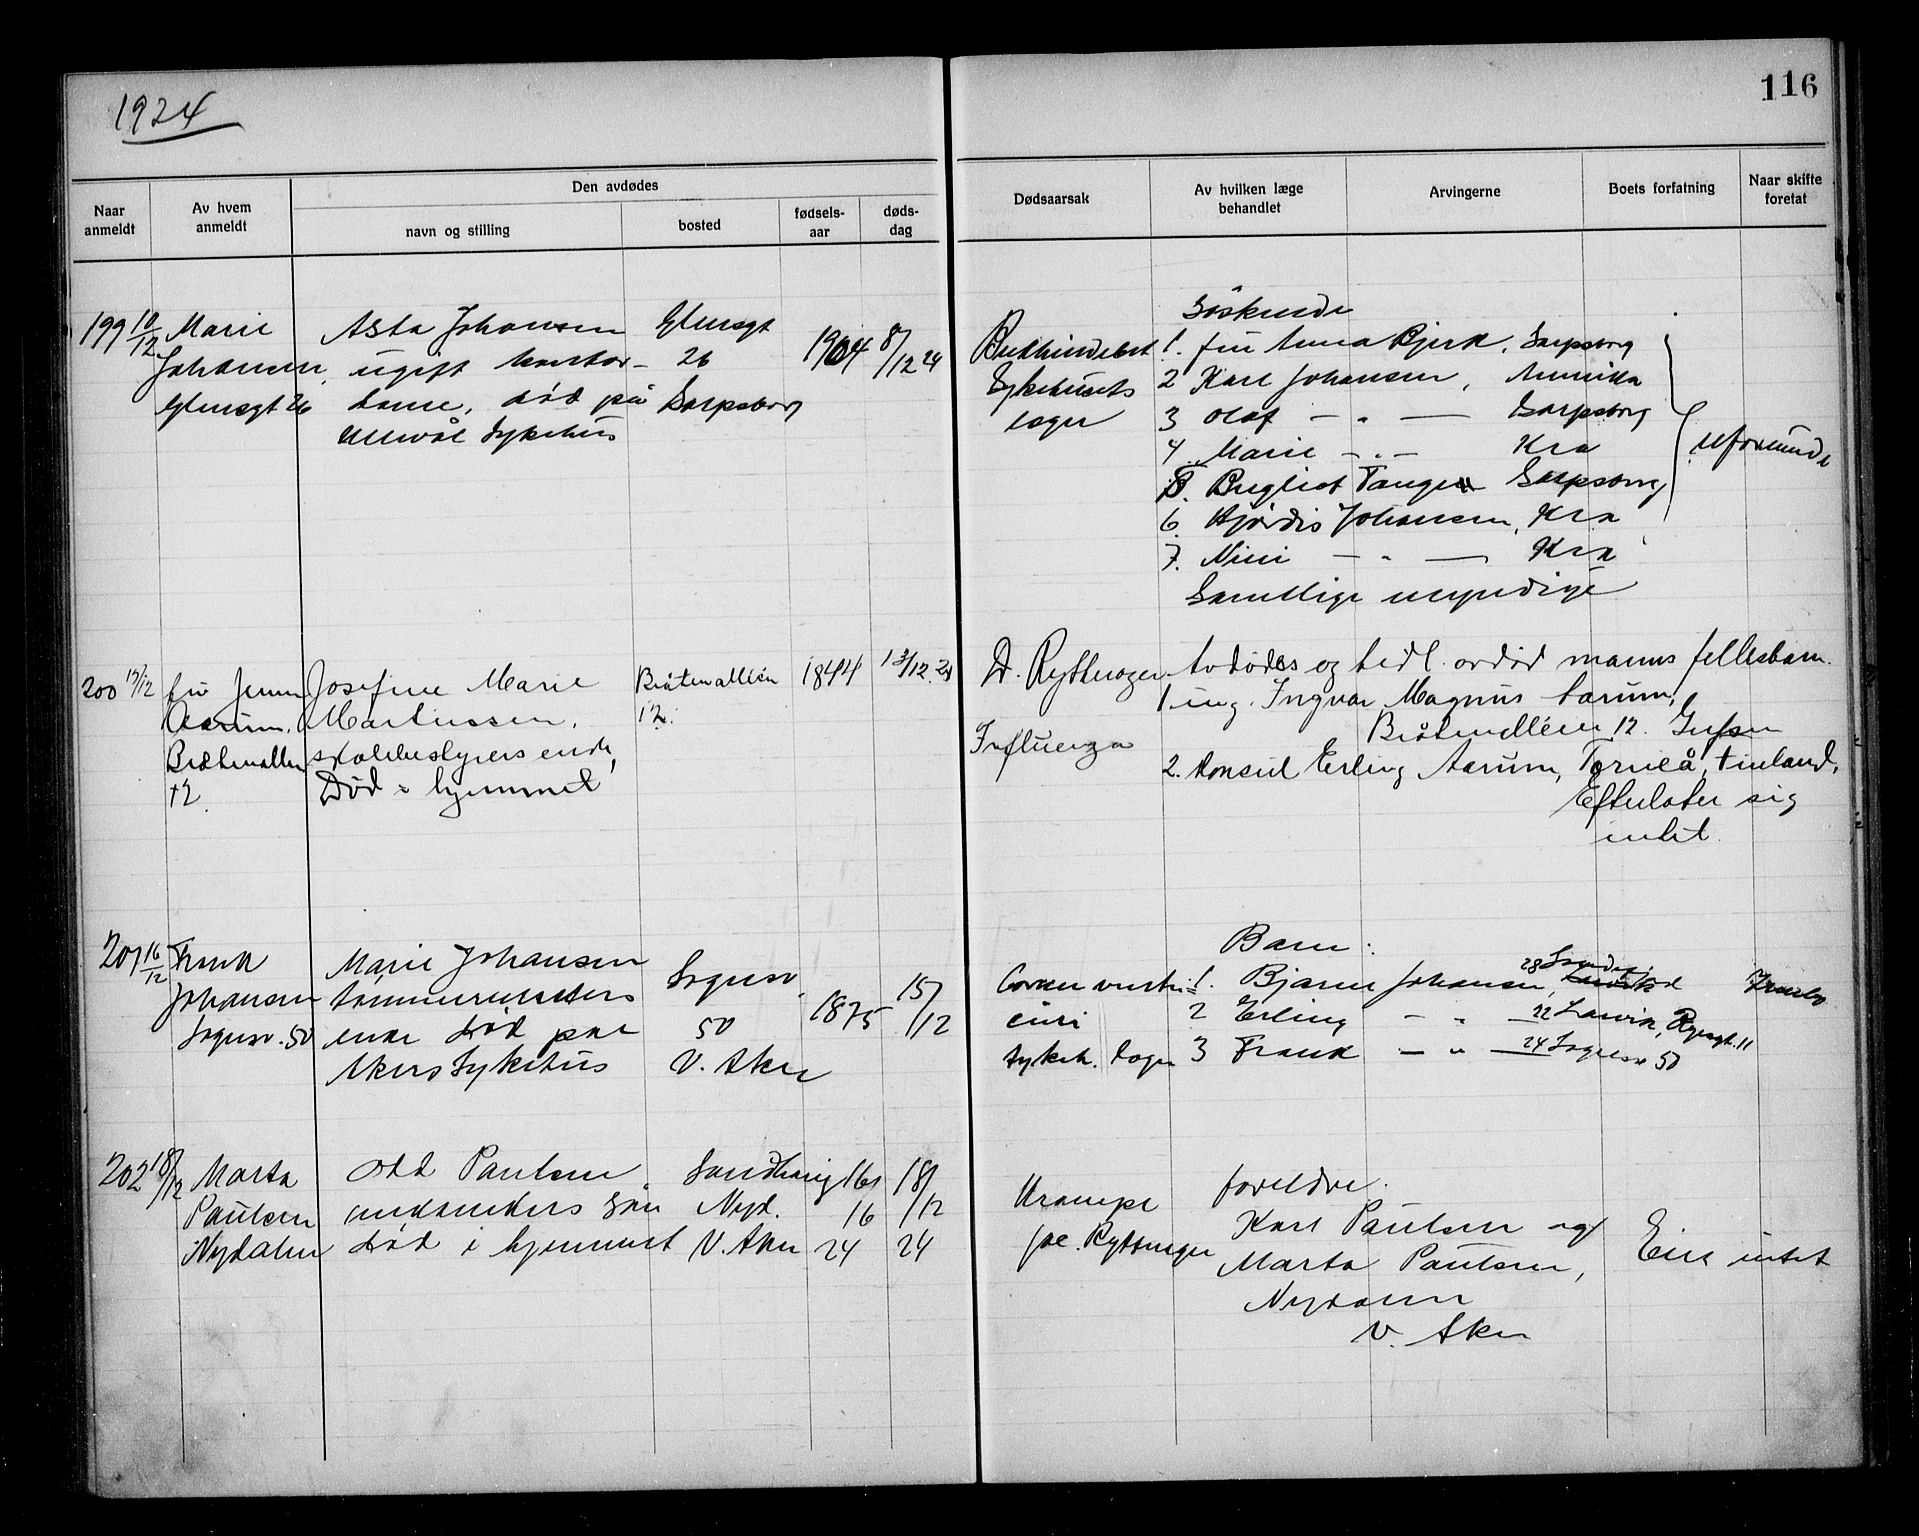 1924
116
Den avdødes
Naar anmeldt
Av hvem anmeldt
navn og stilling
bosted
fødsels-aar
døds-dag
Dødsaarsak
Av hvilken læge behandlet
Arvingerne
Boets forfatning
Naar skifte foretat
199 10/12 Marie Asta Johansen Glengt 1904 8/12 24
Johansen, ugift kontor- 26
Glengt 26 dame, død på Sarpsborg
Ullevål Sykehus
Søskende
1. fru Anna Bjerk, Sarpsborg
Sykehusets 2 Karl Johansen, Amerika
læger 3 Olaf — " — Sarpsborg
4. Marie — " — Kra
5. Tange Sarpsborg
6. Hjørdis Johansen, Kra
7. — " — Kra
Samtlige myndige
uformuende
200 15/12 fru Jenny Josefine Marie Bråtenalléen 1844 13/12.24
Aarum. Martinssen, 12.
Bråtenalleen skolebestyrers enke,
12. Død i hjemmet
D. Rytterager Avdødes og tidl. avdød manns fellesbarn.
1 ing. Ingvar Magnus Aarum,
Bråtenalléen 12. Gufsen
Influenza
2. Konsul Erling Aarum, Torneå, Finland.
Efterlater sig
intet.
201 16/12 Frank Marie Johansen Sognsv. 1875 15/12
Johansen tømmermesters 50
Sognsv. 50 enke død paa V. Aker
Akers Sykehus
Barn:
Cancer ventri- 1. Bjarne Johansen, 28
culi 2 Erling — " — 22 Larvik, 11
sykeh. læger 3 Frank — " — 24 Sognsv 50
202 18/12 Marta Odd Paulsen Sandhaug 16/ 18/
Paulsen søn Nyd. 16 /12
Nydalen død i hjemmet V. Aker 24 24
Krampe foreldre.
Rytterager Karl Paulsen og
Marta Paulsen, Eier intet
Nydalen
V. Aker